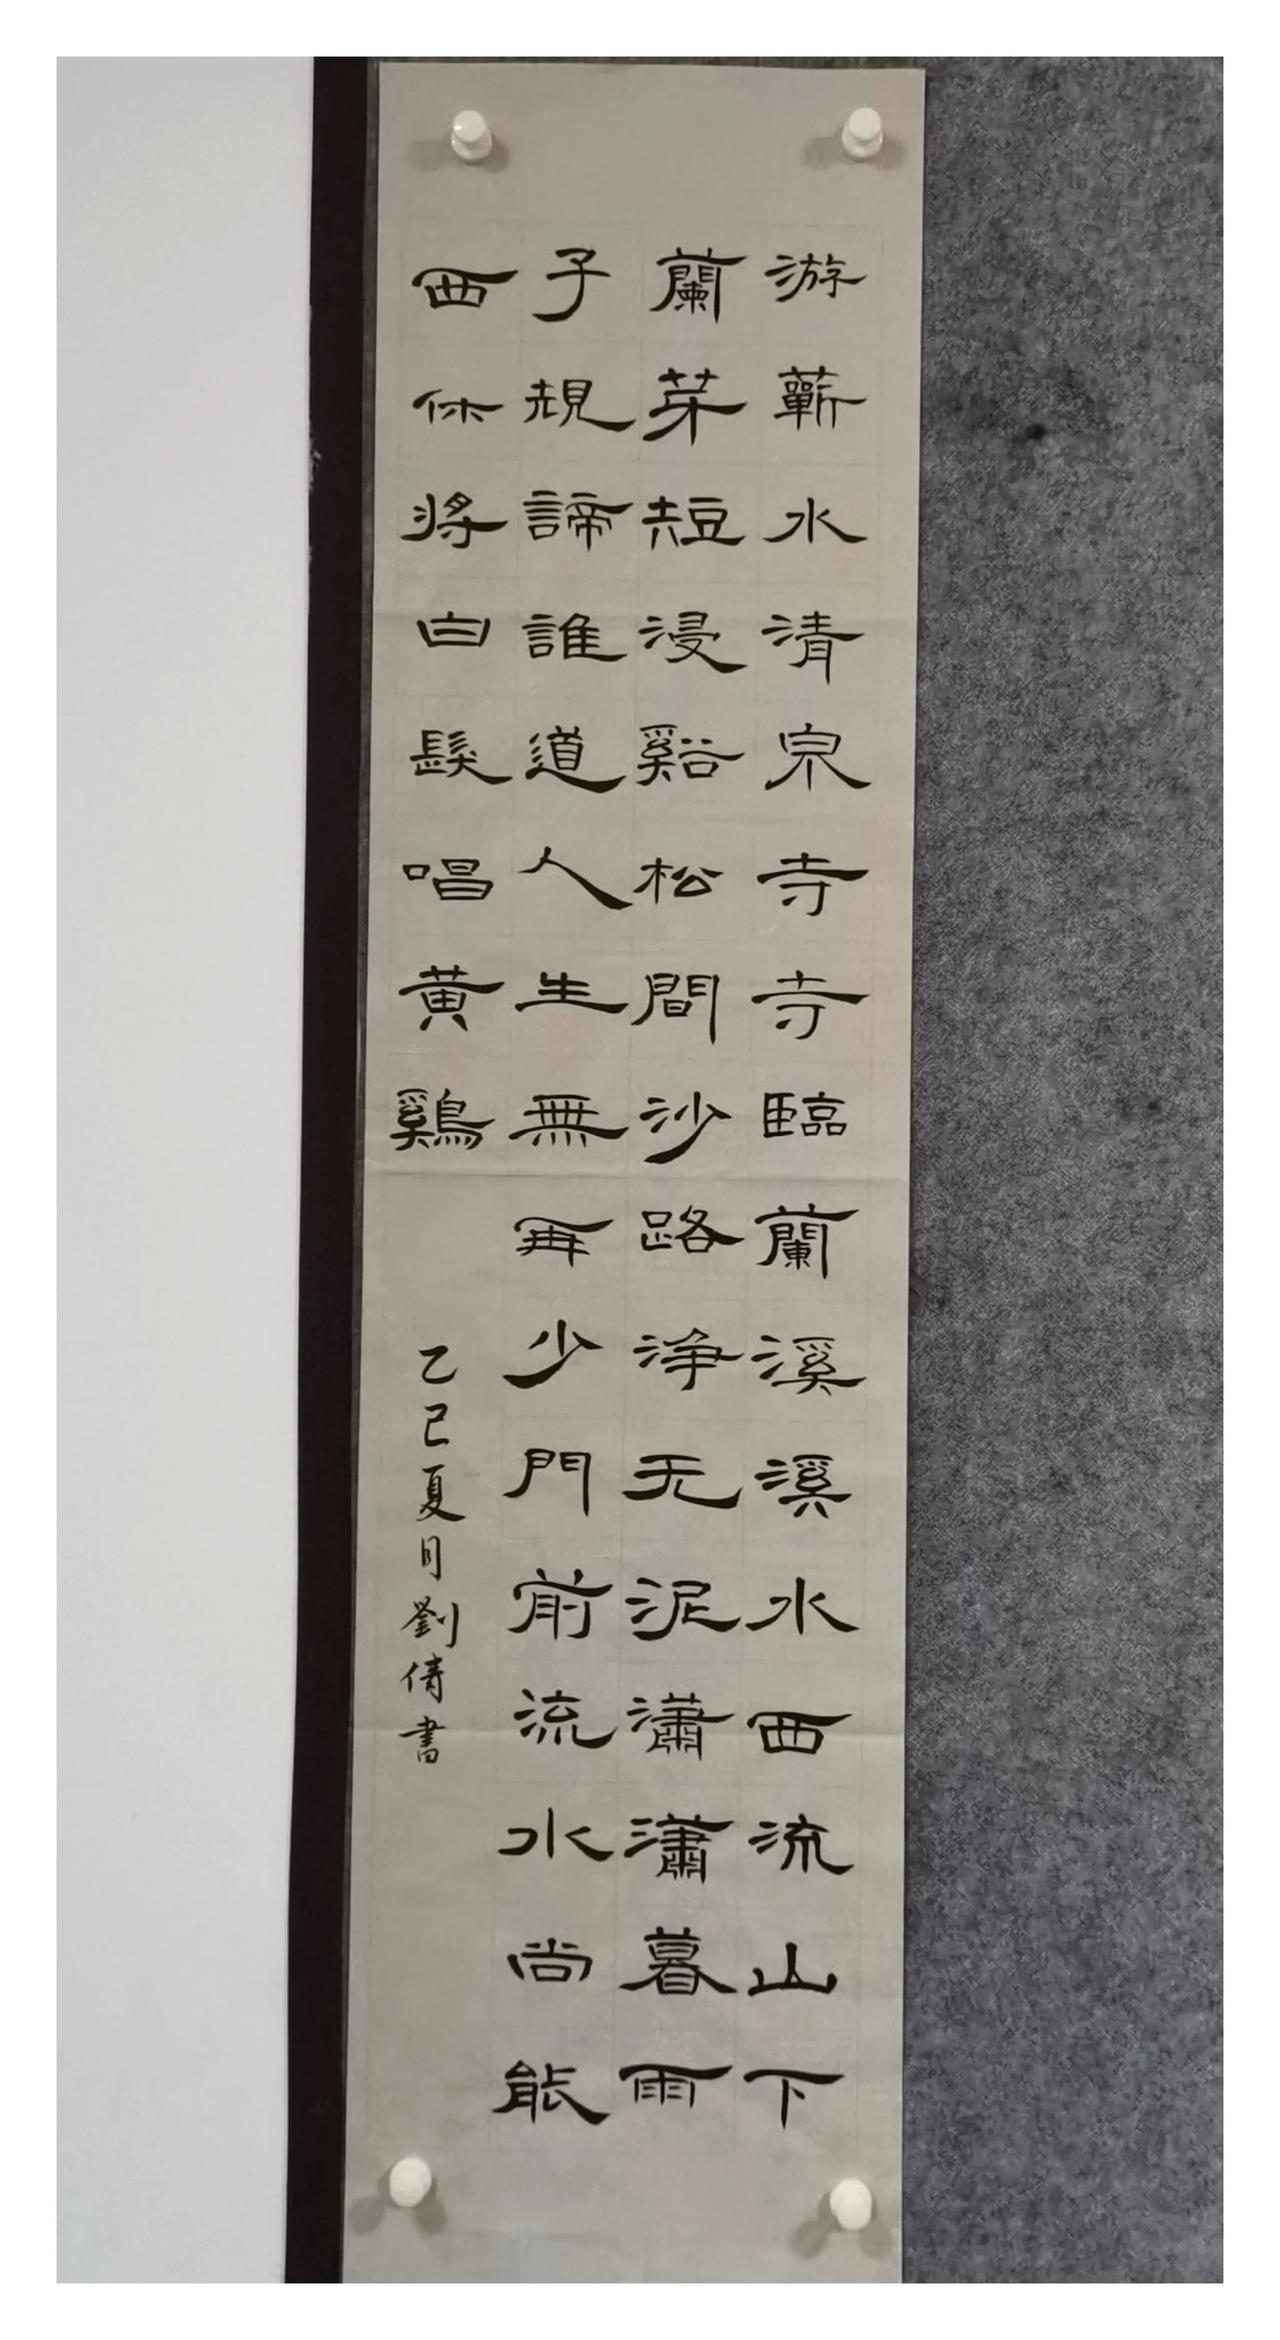 游蘄水清泉寺寺臨蘭溪溪水西流山下
蘭芽短浸谿松間沙路净无泥瀟瀟暮雨
子規諦誰道人生無再少門前流水尚能
西休將白髮唱黄鷄
乙巳夏月劉倩書